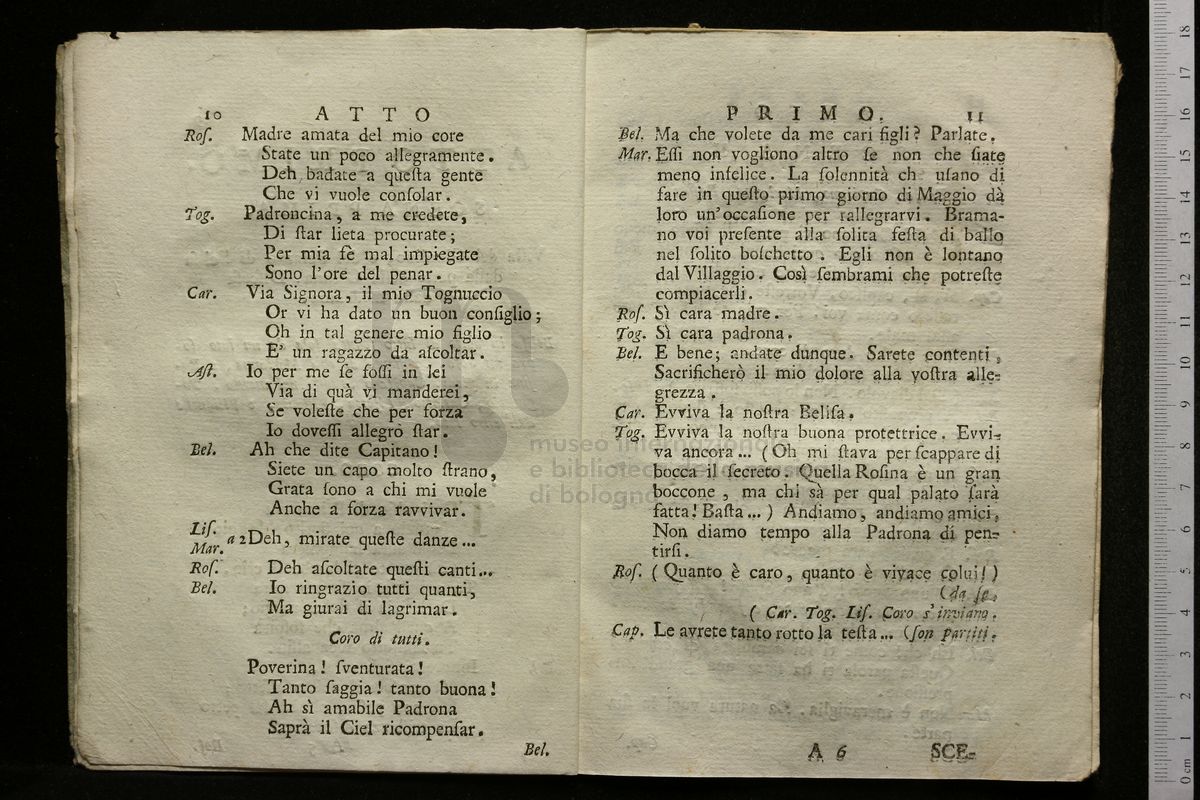 10 ATTO
Roſ. Madre amata del mio core
State un poco allegramente.
Deh badate a queſta gente
Che vi vuole conſolar.
Tog. Padroncina, a me credete,
Di ſtar lieta procurate;
Per mia fè mal impiegate
Sono l'ore del penar.
Car. Via Signora, il mio Tognuccio
Or vi ha dato un buon conſiglio;
Oh in tal genere mio figlio
E' un ragazzo da aſcoltar.
Aſt. Io per me ſe foſſi in lei
Via di quà vi manderei,
Se voleſte che per forza
Io doveſſi allegro ſtar.
Bel. Ah che dite Capitano!
Siete un capo molto ſtrano,
Grata ſono a chi mi vuole
Anche a forza ravvivar.
Liſ.
Mar. a 2 Deh, mirate queſte danze...
Roſ. Deh aſcoltate queſti canti...
Bel. Io ringrazio tutti quanti,
Ma giurai di lagrimar.
Coro di tutti.
Poverina! ſventurata!
Tanto ſaggia! tanto buona!
Ah sì amabile Padrona
Saprà il Ciel ricompenſar.
Bel.
PRIMO. 11
Bel. Ma che volete da me cari figli? Parlate.
Mar. Eſſi non vogliono altro ſe non che ſiate
meno infelice. La ſolennità ch uſano di
fare in queſto primo giorno di Maggio dà
loro un'occaſione per rallegrarvi. Brama-
no voi preſente alla ſolita feſta di ballo
nel ſolito boſchetto. Egli non è lontano
dal Villaggio. Così ſembrami che potreſte
compiacerli.
Roſ. Sì cara madre.
Tog. Sì cara padrona.
Bel. E bene; andate dunque. Sarete contenti,
Sacrificherò il mio dolore alla voſtra alle-
grezza.
Car. Evviva la noſtra Beliſa.
Tog. Evviva la noſtra buona protettrice. Evvi-
va ancora... (Oh mi ſtava per ſcappare di
bocca il ſecreto. Quella Roſina è un gran
boccone, ma chi sà per qual palato ſarà
fatta! Baſta...) Andiamo, andiamo amici,
Non diamo tempo alla Padrona di pen-
tirſi.
Roſ. (Quanto è caro, quanto è vivace colui!)
(da ſe.
( Car. Tog. Liſ. Coro s'inviano.
Cap. Le avrete tanto rotto la teſta... (ſon partiti.
A 6 SCE-
museo internazionale
e biblioteca della
di bologna
0 cm 1 2 3 4 5 6 7 8 9 10 11 12 13 14 15 16 17 18